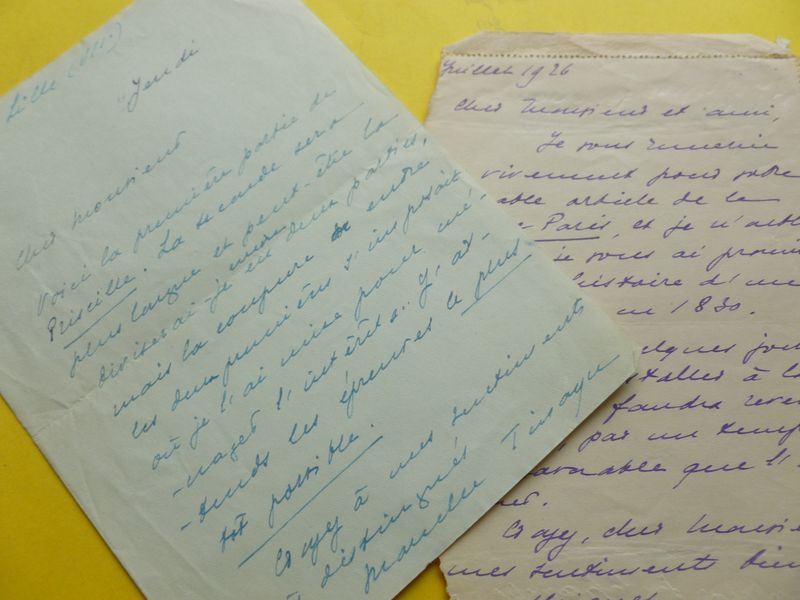 Lille
Jeudi
Cher Monsieur
Voici la première partie de
Priscille. La seconde sera
plus longue et peut-être la
diviserai-je en deux parties,
mais la coupure entre
les deux premières s'imposait
où je l'ai mise pour mé-
-nager l'intérêt. J'at-
-tends les épreuves le plus
tôt possible.
Croyez à mes sentiments
distingués
Marcelle Tinayre
Juillet 1926
Cher Monsieur et ami,
Je vous remercie
vivement pour votre
able article de la
Paris, et je n'oubl
je vous ai promi
histoire d'une
n 1830.
elques jou
stallés à l
faudra reve
, par un temp
avorable que l'
Croyez, cher Monsie
mes sentiments bien